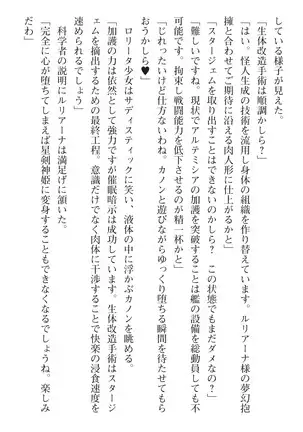 している様子が見えた。
「生体改造手術は順調かしら？」
「はい。怪人生成の技術を流用し身体の組織を作り替えています。ルリアーナ様の夢幻抱
擁と合わせてご期待に沿える肉人形に仕上がるかと」
「スタージェムを取り出すことはできないのかしら？　この状態でもまだダメなの？」
「難しいですね。現状でアルテミシアの加護を突破することは艦の設備を総動員しても不
可能です。拘束し戦闘能力を低下させるのが精一杯かと」
「じれったいけど仕方ないわね。カノンと遊びながらゆっくり堕ちる瞬間を待たせてもら
おうかしら♥」
ロリータ少女はサディスティックに笑い、液体の中に浮かぶカノンを眺める。
「加護の力は依然として強力ですが催眠暗示は成功しています。生体改造手術はスタージ
ェムを摘出するための最終工程。意識だけでなく肉体に干渉することで快楽の浸食速度を
速められるでしょう」
科学者の説明にルリアーナは満足げに頷いた。
「完全に心が堕ちてしまえば星剣神姫に変身することもできなくなるでしょうね。楽しみ
だわ」